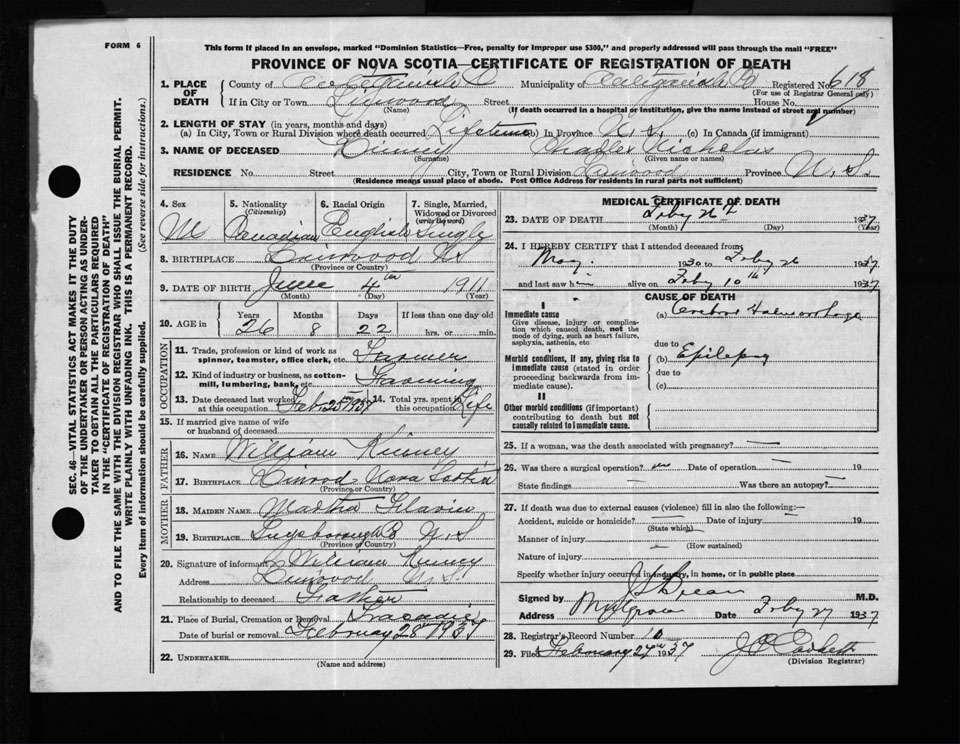 FORM 6
This form if placed in an envelope, marked "Dominion Statistics—Free, penalty for improper use $300," and properly addressed will pass through the mail "FREE"
PROVINCE OF NOVA SCOTIA—CERTIFICATE OF REGISTRATION OF DEATH
1. PLACE OF DEATH
County of Municipality of Antigonish Registered No. 618
(Name) (For use of Registrar General only)
If in City or Town Linwood Street House No.
(If death occurred in a hospital or institution, give the name instead of street and number)
2. LENGTH OF STAY (in years, months and days)
(a) In City, Town or Rural Division where death occurred Lifetime (b) In Province N.S. (c) In Canada (if immigrant)
3. NAME OF DECEASED Kinney Charles Nicholas
(Surname) (Given name or names)
RESIDENCE No. Street City, Town or Rural Division Linwood Province N.S.
(Residence means usual place of abode. Post Office Address for residents in rural parts not sufficient)
4. Sex M
5. Nationality (Citizenship) Canadian
6. Racial Origin English
7. Single, Married, Widowed or Divorced (write the word) Single
8. BIRTHPLACE Linwood NS
(Province or Country)
9. DATE OF BIRTH June 4th 1911
(Month) (Day) (Year)
10. AGE in Years Months Days If less than one day old
26 8 22 hrs. or min.
OCCUPATION
11. Trade, profession or kind of work as spinner, teamster, office clerk, etc. Farmer
12. Kind of industry or business, as cotton-mill, lumbering, bank, etc. Farming
13. Date deceased last worked at this occupation Feb 1937
14. Total yrs. spent in this occupation Life
15. If married give name of wife or husband of deceased
FATHER
16. NAME William Kinney
17. BIRTHPLACE Linwood Nova Scotia
(Province or Country)
MOTHER
18. MAIDEN NAME Martha
19. BIRTHPLACE Guysborough N.S
(Province or Country)
20. Signature of informant William Kinney
Address Linwood N.S.
Relationship to deceased Father
21. Place of Burial, Cremation or Removal Tracadie
Date of burial or removal February 28th 1937
22. UNDERTAKER
(Name and address)
MEDICAL CERTIFICATE OF DEATH
23. DATE OF DEATH Feby 26 1937
(Month) (Day) (Year)
24. I HEREBY CERTIFY that I attended deceased from
May 1930 to Feby 26 1937
and last saw him alive on Feby 10th 1937
CAUSE OF DEATH
I
Immediate cause
Give disease, injury or complication which caused death, not the mode of dying, such as heart failure, asphyxia, asthenia, etc.
(a) Cerebral Haemorrhage
due to
Morbid conditions, if any, giving rise to immediate cause (stated in order proceeding backwards from immediate cause).
(b) Epilepsy
due to
(c)
II
Other morbid conditions (if important) contributing to death but not causally related to immediate cause.
25. If a woman, was the death associated with pregnancy?
26. Was there a surgical operation? no Date of operation 19
State findings Was there an autopsy?
27. If death was due to external causes (violence) fill in also the following:—
Accident, suicide or homicide? Date of injury 19
(State which)
Manner of injury
(How sustained)
Nature of injury
Specify whether injury occurred in industry, in home, or in public place
Signed by M.D.
Address Mulgrave Date Feby 27 1937
28. Registrar's Record Number 10
29. Filed February 27th 1937
(Division Registrar)
SEC. 46—VITAL STATISTICS ACT MAKES IT THE DUTY OF THE UNDERTAKER OR PERSON ACTING AS UNDERTAKER TO OBTAIN ALL THE PARTICULARS REQUIRED IN THE "CERTIFICATE OF REGISTRATION OF DEATH"
AND TO FILE THE SAME WITH THE DIVISION REGISTRAR WHO SHALL ISSUE THE BURIAL PERMIT.
WRITE PLAINLY WITH UNFADING INK. THIS IS A PERMANENT RECORD.
Every item of information should be carefully supplied. (See reverse side for instructions.)